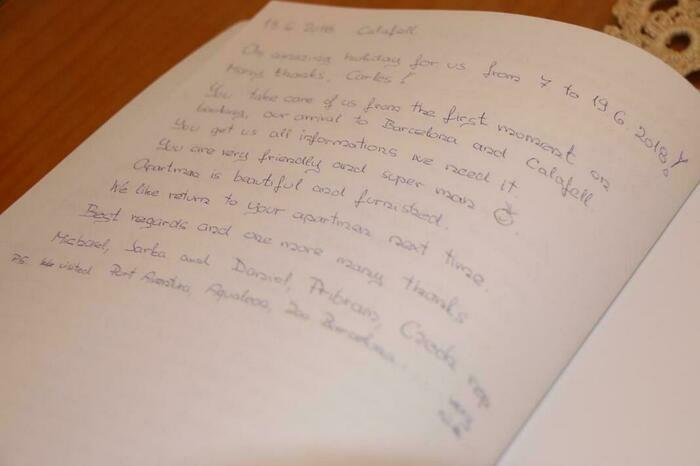 19.6.2018 Calafell
An amazing holiday for us from 7 to 19.6.2018!
Many thanks, Carles!
You take care of us from the first moment on
booking, our arrival to Barcelona and Calafell.
You get us all informations we need it
You are very friendly and super man ☺.
Apartman is beautiful and furnished.
We like return to your apartman next time.
Best regards and one more many thanks
Michael, Sarka and Daniel, Pribram, Czech rep
PS. We visited Port Aventura, Aqualeon, Zoo Barcelona.... very
nice